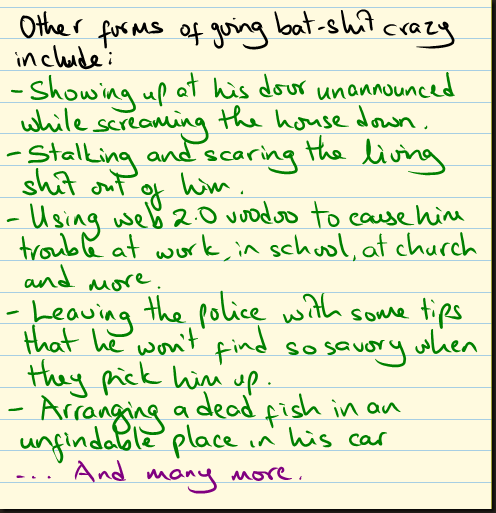 Other forms of going bat-shit crazy
include:
- Showing up at his door unannounced
while screaming the house down.
- Stalking and scaring the living
shit out of him.
- Using web 2.0 voodoo to cause him
trouble at work, in school, at church
and more.
- Leaving the police with some tips
that he won't find so savory when
they pick him up.
- Arranging a dead fish in an
unfindable place in his car
... And many more.